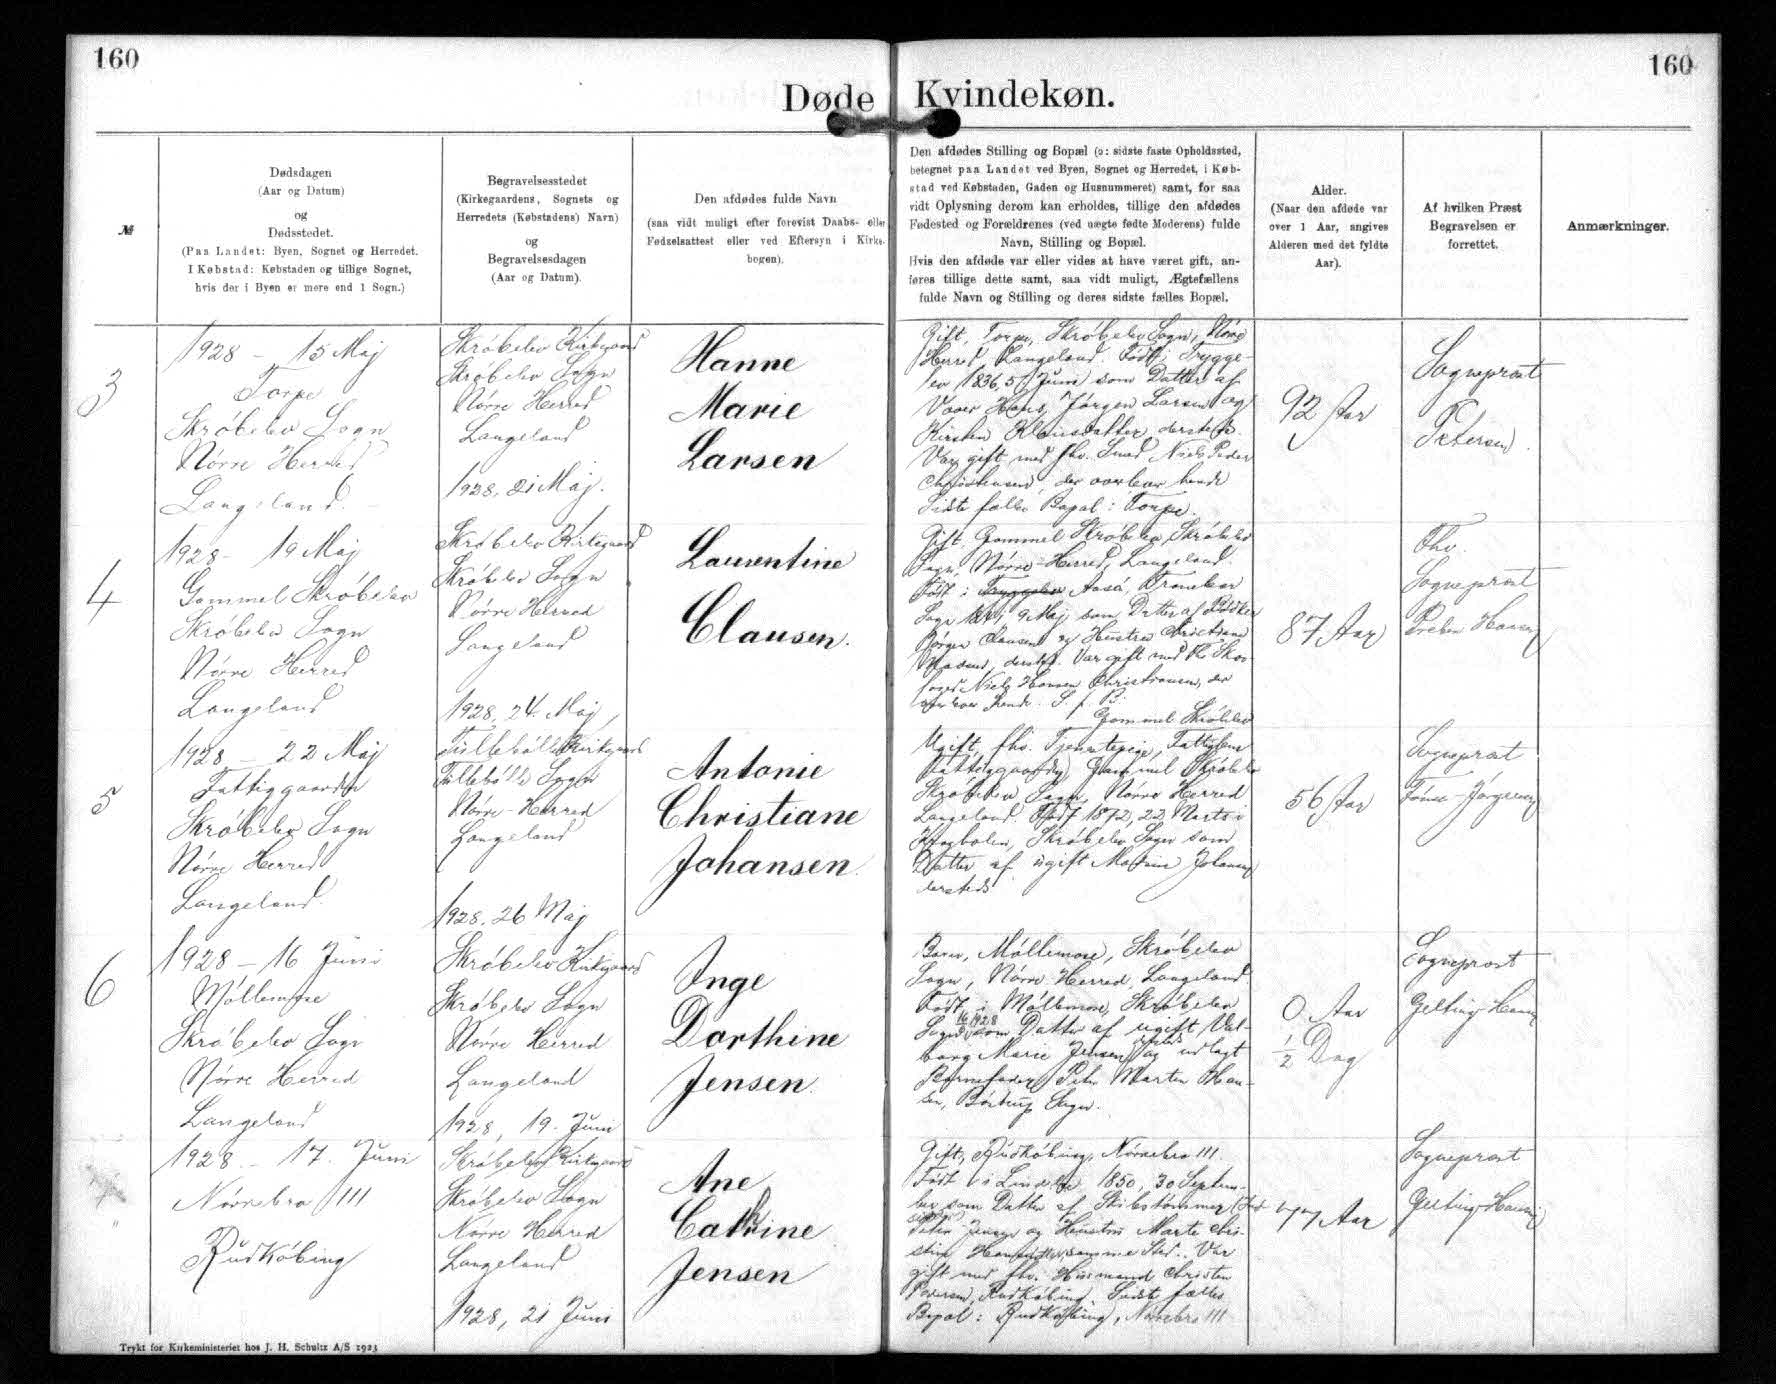 160
160
Døde Kvindekøn.
№
Dødsdagen
(Aar og Datum)
og
Dødsstedet.
(Paa Landet: Byen, Sognet og Herredet.
I Købstad: Købstaden og tillige Sognet,
hvis der i Byen er mere end 1 Sogn.)
Begravelsesstedet
(Kirkegaardens, Sognets og
Herredets (Købstadens) Navn)
og
Begravelsesdagen
(Aar og Datum).
Den afdødes fulde Navn
(saa vidt muligt efter forevist Daabs- eller
Fødselsattest eller ved Eftersyn i Kirke-
bogen).
Den afdødes Stilling og Bopæl (ɔ: sidste faste Opholdssted,
betegnet paa Landet ved Byen, Sognet og Herredet, i Køb-
stad ved Købstaden, Gaden og Husnummeret) samt, for saa
vidt Oplysning derom kan erholdes, tillige den afdødes
Fødested og Forældrenes (ved uægte fødte Moderens) fulde
Navn, Stilling og Bopæl.
Hvis den afdøde var eller vides at have været gift, an-
føres tillige dette samt, saa vidt muligt, Ægtefællens
fulde Navn og Stilling og deres sidste fælles Bopæl.
Alder.
(Naar den afdøde var
over 1 Aar, angives
Alderen med det fyldte
Aar).
Af hvilken Præst
Begravelsen er
forrettet.
Anmærkninger.
3
1928 - 15 Maj
Torpe
Skrøbelev Sogn
Nørre Herred
Langeland.
Skrøbelev Kirkegaard
Skrøbelev Sogn
Nørre Herred
Langeland
1928, 21 Maj.
Hanne
Marie
Larsen
Gift, Torpe, Skrøbelev Sogn, Nørre
Herred, Langeland. Født i Trygge-
lev 1836, 5 Juni som Datter af
Væver Hans Jørgen Larsen og
Kirsten Klausdatter dersteds.
Var gift med fhv. Smed Niels Peder
Christensen, der overlever hende
Sidste fælles Bopæl: Torpe.
92 Aar
Sogneprest
Petersen.
4
1928 - 19 Maj
Gammel Skrøbelev
Skrøbelev Sogn
Nørre Herred
Langeland
Skrøbelev Kirkegaard
Skrøbelev Sogn
Nørre Herred
Langeland
1928, 24. Maj
Laurentine
Clausen.
Gift, Gammel Skrøbelev, Skrøbelev
Sogn, Nørre-Herred, Langeland.
Født i Tryggelev Aasø, Tranekær
Sogn 1841, 9 Maj som Datter af Bødker
Jørgen Clausen og Hustru Christiane
Madsen, dersteds. Var gift med fhv. Skov-
foged Niels Hansen Christiansen, der
overlever hende. S. f. B.:
Gammel Skrøbelev
87 Aar
Fhv.
Sogneprest
Preben Hansen
5
1928 - 22 Maj
Fattiggaarden
Skrøbelev Sogn
Nørre Herred
Langeland.
Tullebølle Kirkegaard
Tullebølle Sogn
Nørre-Herred
Langeland
1928. 26 Maj
Antonie
Christiane
Johansen.
Ugift, fhv. Tjenestepige, Fattiglem
Fattiggaarden, Gammel Skrøbelev
Skrøbelev Sogn, Nørre Herred
Langeland. Født 1872, 22 Marts i
Skrøbelev Sogn som
Datter af ugift Johansen
dersteds
56 Aar
Sogneprest
Tønne-Jørgensen
6
1928 - 16 Juni
Møllemose
Skrøbelev Sogn
Nørre Herred
Langeland
Skrøbelev Kirkegaard
Skrøbelev Sogn
Nørre Herred
Langeland
1928, 19. Juni
Inge
Dorthine
Jensen.
Barn, Møllemose, Skrøbelev
Sogn, Nørre Herred, Langeland.
Født i Møllemose, Skrøbelev
Sogn 16/6 1928 som Datter af ugift Val-
borg Marie Jensen dersteds og udlagt
Barnefader Peter Marten Han-
sen, Bøstrup Sogn.
0 Aar
½ Dag
Sogneprest
Gelting-Hansen
1928. - 17. Juni
Nørrebro 111
Rudkøbing
Skrøbelev Kirkegaard
Skrøbelev Sogn
Nørre Herred
Langeland
1928, 21 Juni
Ane
Catrine
Jensen
Gift, Rudkøbing, Nørrebro 111.
Født i Lindelse 1850, 30 Septem-
ber som Datter af Skibstømmer
Peter Jensen og Hustru Marte Chri-
stine Hansen samme Sted. Var
gift med fhv. Husmand Christen
Pedersen, Rudkøbing. Sidste fælles
Bopæl: Rudkøbing, Nørrebro 111
77 Aar
Sogneprest
Gelting-Hansen
Trykt for Kirkeministeriet hos J. H. Schultz A/S 1923